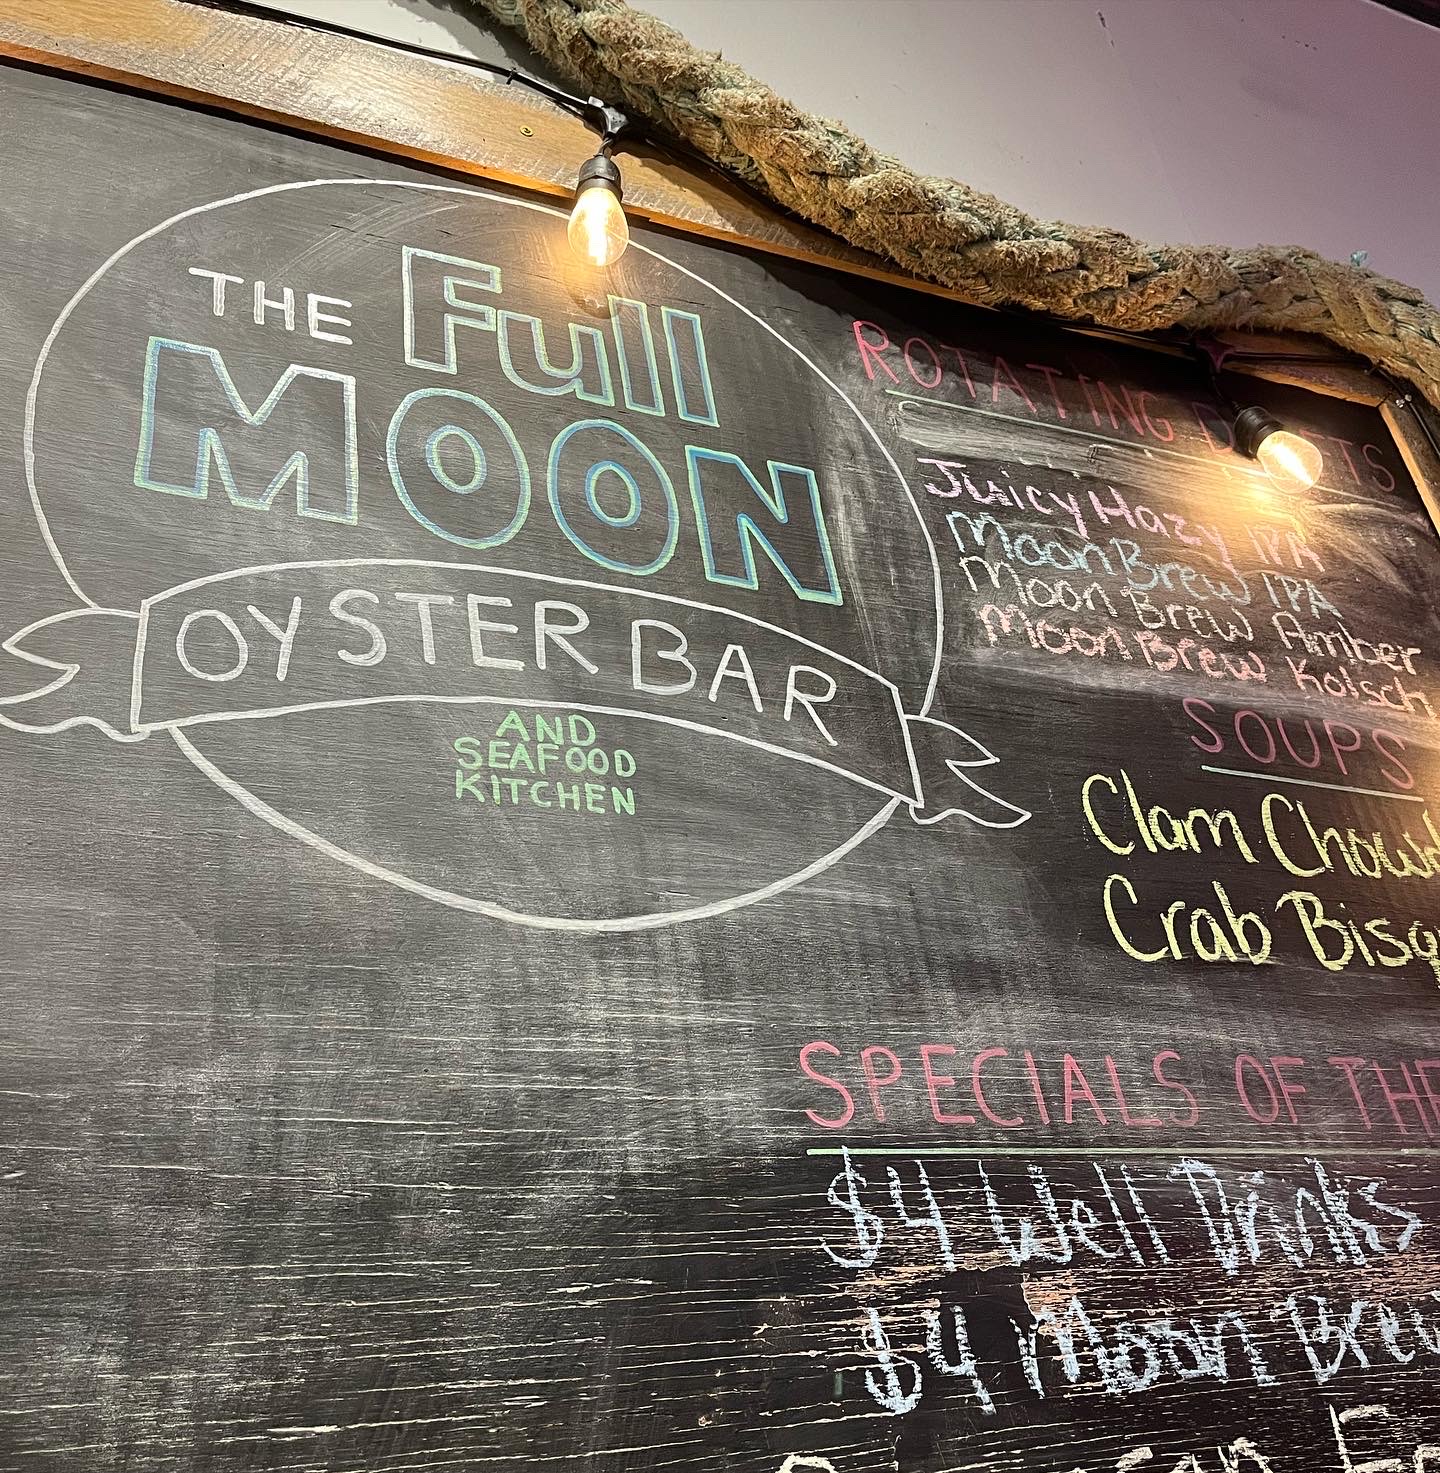 THE Full
MOON
OYSTER BAR
AND
SEAFOOD
KITCHEN
ROTATING
Juicy Hazy IPA
Moon Brew IPA
Moon Brew Amber
Moon Brew Kolsch
SOUPS
Clam Chowd
Crab Bisq
SPECIALS OF THE
$4 Well Drinks
$4 Moon Brew